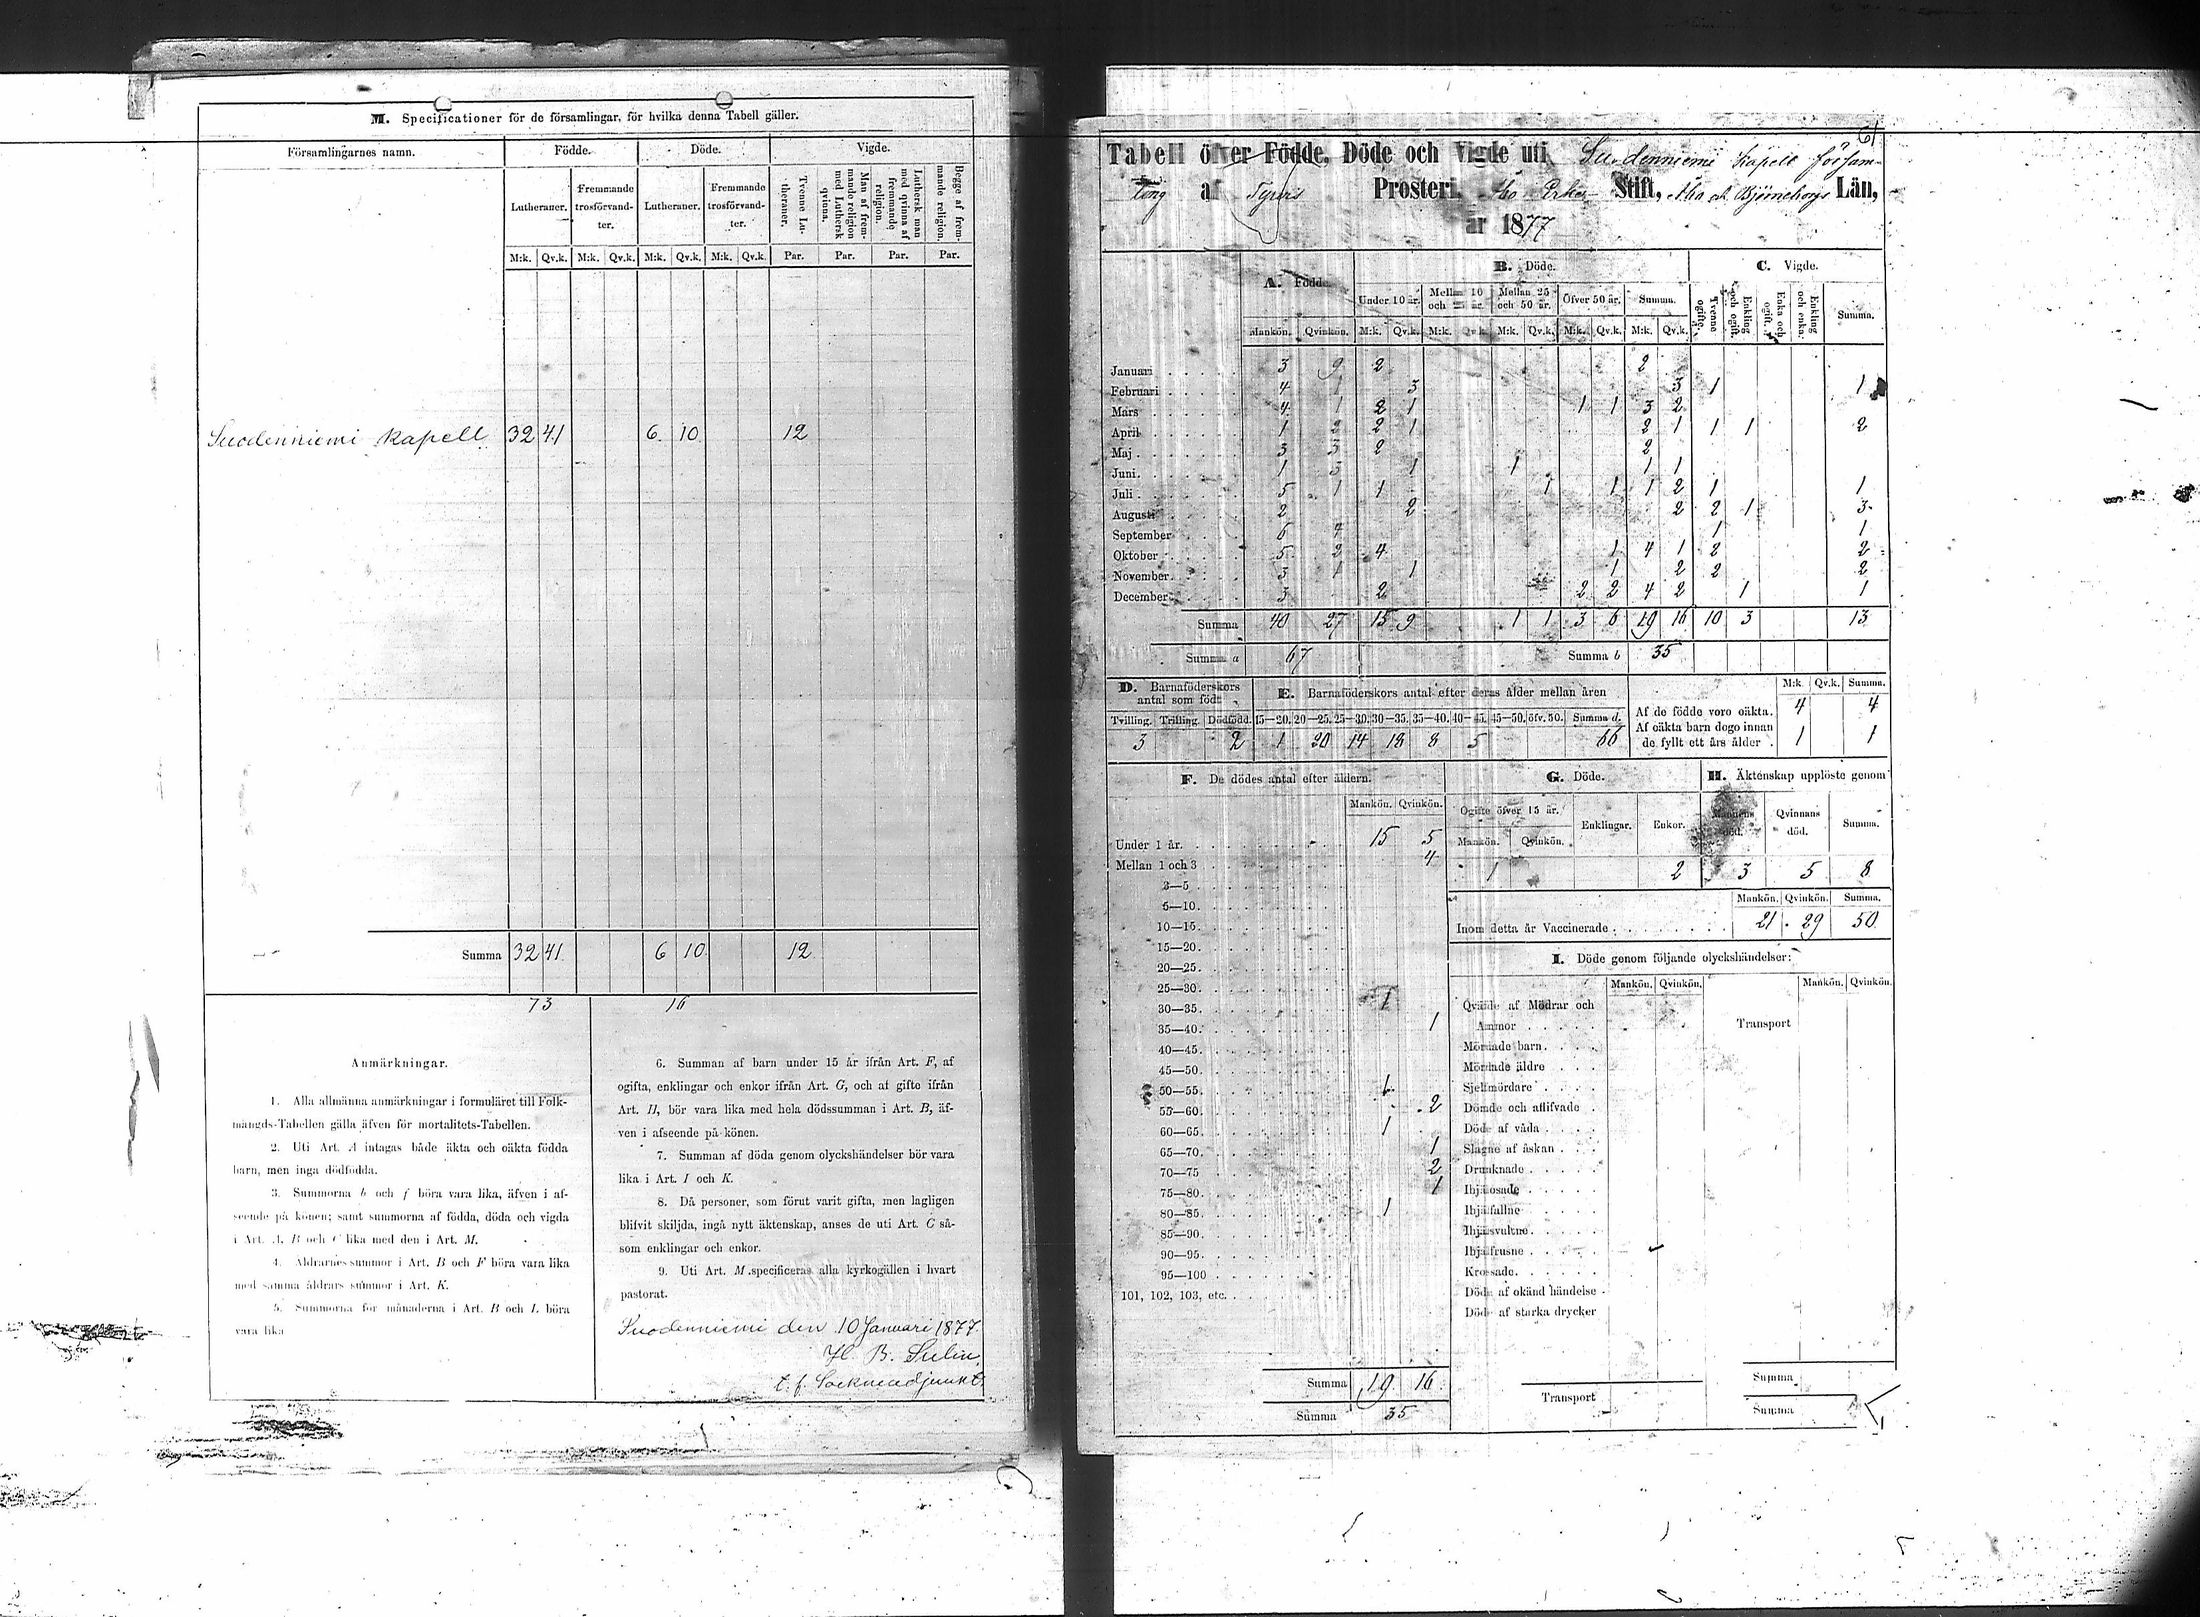 M. Specificationer för de församlingar, för hvilka denna Tabell gäller.
Församlingarnes namn. Födde. Döde. Vigde.
Lutheraner. Fremmande trosförvandter. Lutheraner. Fremmande trosförvandter. Tvenne Lutheraner. Man af fremmande religion med Luthersk qvinna. Luthersk man med qvinna af fremmande religion. Begge af fremmande religion.
M:k. Qv.k. M:k. Qv.k. M:k. Qv.k. M:k. Qv.k. Par. Par. Par. Par.
Suodenniemi kapell 32 41 6 10 12
Summa 32 41 6 10 12
73 16
Anmärkningar.
1. Alla allmänna anmärkningar i formuläret till Folk-
mängds-Tabellen gälla äfven för mortalitets-Tabellen.
2. Uti Art. A intagas både äkta och oäkta födda
barn, men inga dödfödda.
3. Summorna b och f böra vara lika, äfven i af-
seende på könen; samt summorna af födda, döda och vigda
i Art. A, B och C lika med den i Art. M.
4. Åldrarnes summor i Art. B och F böra vara lika
med samma åldrars summor i Art. K.
5. Summorna för månaderna i Art. B och L böra
vara lika
6. Summan af barn under 15 år ifrån Art. F, af
ogifta, enklingar och enkor ifrån Art. G, och af gifte ifrån
Art. H, bör vara lika med hela dödssumman i Art. B, äf-
ven i afseende på könen.
7. Summan af döda genom olyckshändelser bör vara
lika i Art. I och K.
8. Då personer, som förut varit gifta, men lagligen
blifvit skiljda, ingå nytt äktenskap, anses de uti Art. C så-
som enklingar och enkor.
9. Uti Art. M specificeras alla kyrkogällen i hvart
pastorat.
Suodenniemi den 10 Januari 1877.
B. Sulin,
t. f. Sockneadjunkt
61
Tabell öfver Födde, Döde och Vigde uti Suodenniemi kapell församl-
ling af Tyrvis Prosteri, Åbo Erke Stift, Åbo och Björneborgs Län,
år 1877
A. Födde. B. Döde. C. Vigde.
Under 10 år. Mellan 10 och 25 år. Mellan 25 och 50 år. Öfver 50 år. Summa. Tvenne ogifte. Enkling och ogift. Enka och ogift. Enkling och enka. Summa.
Mankön. Qvinkön. M:k. Qv.k. M:k. Qv.k. M:k. Qv.k. M:k. Qv.k. M:k. Qv.k.
Januari 3 9 2 2
Februari 4 1 3 3 1 1
Mars 4 1 2 1 1 1 3 2
April 1 2 2 1 2 1 1 1 2
Maj 3 3 2 2
Juni 1 3 1 1 1 1
Juli 5 1 1 1 1 1 2 1 1
Augusti 2 2 2 2 1 3
September 6 4 1 1
Oktober 5 2 4 1 4 1 2 2
November 3 1 1 1 2 2 2
December 3 2 2 2 4 2 1 1
Summa 40 27 15 9 1 1 3 6 19 16 10 3 13
Summa a 67 Summa b 35
D. Barnaföderskors antal som födt
Tvilling. Trilling. Dödfödd.
3 2
E. Barnaföderskors antal efter deras ålder mellan åren
15—20. 20—25. 25—30. 30—35. 35—40. 40—45. 45—50. öfv. 50. Summa d.
1 20 14 18 8 5 66
M:k. Qv.k. Summa.
Af de födde voro oäkta. 4 4
Af oäkta barn dogo innan
de fyllt ett års ålder 1 1
F. De dödes antal efter åldern.
Mankön. Qvinkön.
Under 1 år. 15 5
Mellan 1 och 3 4
3—5
5—10.
10—15
15—20.
20—25.
25—30.
30—35. 1
35—40. 1
40—45.
45—50.
50—55. 1
55—60. 2
60—65. 1
65—70. 1
70—75 2
75—80. 1
80—85. 1
85—90.
90—95.
95—100
101, 102, 103, etc.
Summa 19 16
Summa 35
G. Döde.
Ogifte öfver 15 år. Enklingar. Enkor.
Mankön. Qvinkön.
1 2
H. Äktenskap upplöste genom
Mannens död. Qvinnans död. Summa.
3 5 8
Mankön. Qvinkön. Summa.
Inom detta år Vaccinerade 21 29 50
I. Döde genom följande olyckshändelser:
Mankön. Qvinkön. Mankön. Qvinkön.
Qväfde af Mödrar och
Ammor Transport
Mördade barn.
Mördade äldre
Sjelfmördare
Dömde och aflifvade
Döde af våda
Slagne af åskan
Drunknade
Ihjälosade
Ihjälfallne
Ihjälsvultne.
Ihjälfrusne
Krossade.
Döde af okänd händelse
Döde af starka drycker
Summa
Transport Summa